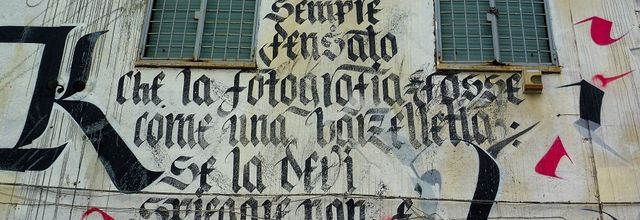 sempre
pensato
che la fotografia fosse
come una barzelletta:
se la devi
spiegare non è